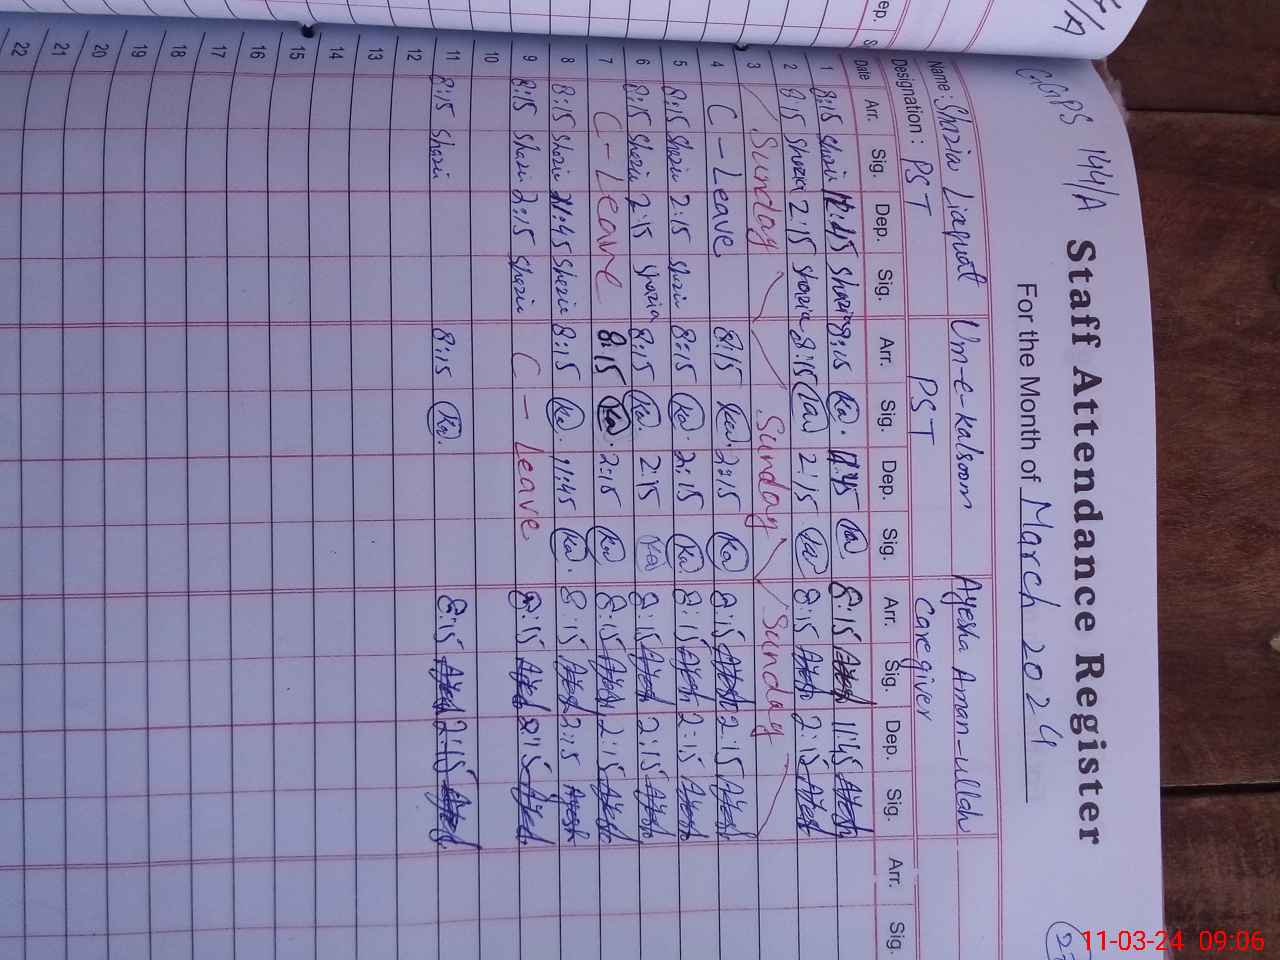 GGPS 144/A
Staff Attendance Register
For the Month of March 2024
Name: Shazia Liaquat Um-e-kalsoom Ayesha Aman-ullah
Designation: PST PST Caregiver
Date Arr. Sig. Dep. Sig. Arr. Sig. Dep. Sig. Arr. Sig. Dep. Sig. Arr. Sig.
1 8:15 Shazia Shazia 8:15 Ka. Ka 8:15 Ayesh 11:45 Ayesh
2 8:15 Shazia 2:15 Shazia 8:15 Ka 2:15 Ka 8:15 Ayesh 2:15 Ayesh
3 Sunday Sunday Sunday
4 C-Leave 8:15 Ka. 2:15 Ka 8:15 Ayesh 2:15 Ayesh
5 8:15 Shazia 2:15 Shazia 8:15 Ka. 2:15 Ka 8:15 Ayesh 2:15 Ayesh
6 8:15 Shazia 2:15 Shazia 8:15 Ka. 2:15 Ka 8:15 Ayesh 2:15 Ayesh
7 C-Leave 8:15 Ka. 2:15 Ka 8:15 Ayesh 2:15 Ayesh
8 8:15 Shazia 11:45 Shazia 8:15 Ka. 11:45 Ka. 8:15 Ayesh 2:15 Ayesh
9 8:15 Shazia 2:15 Shazia C-Leave 8:15 Ayesh 2:15 Ayesh
10
11 8:15 Shazia 8:15 Ka. 8:15 Ayesh 2:15 Ayesh
12
13
14
15
16
17
18
19
20
21
22
11-03-24 09:06